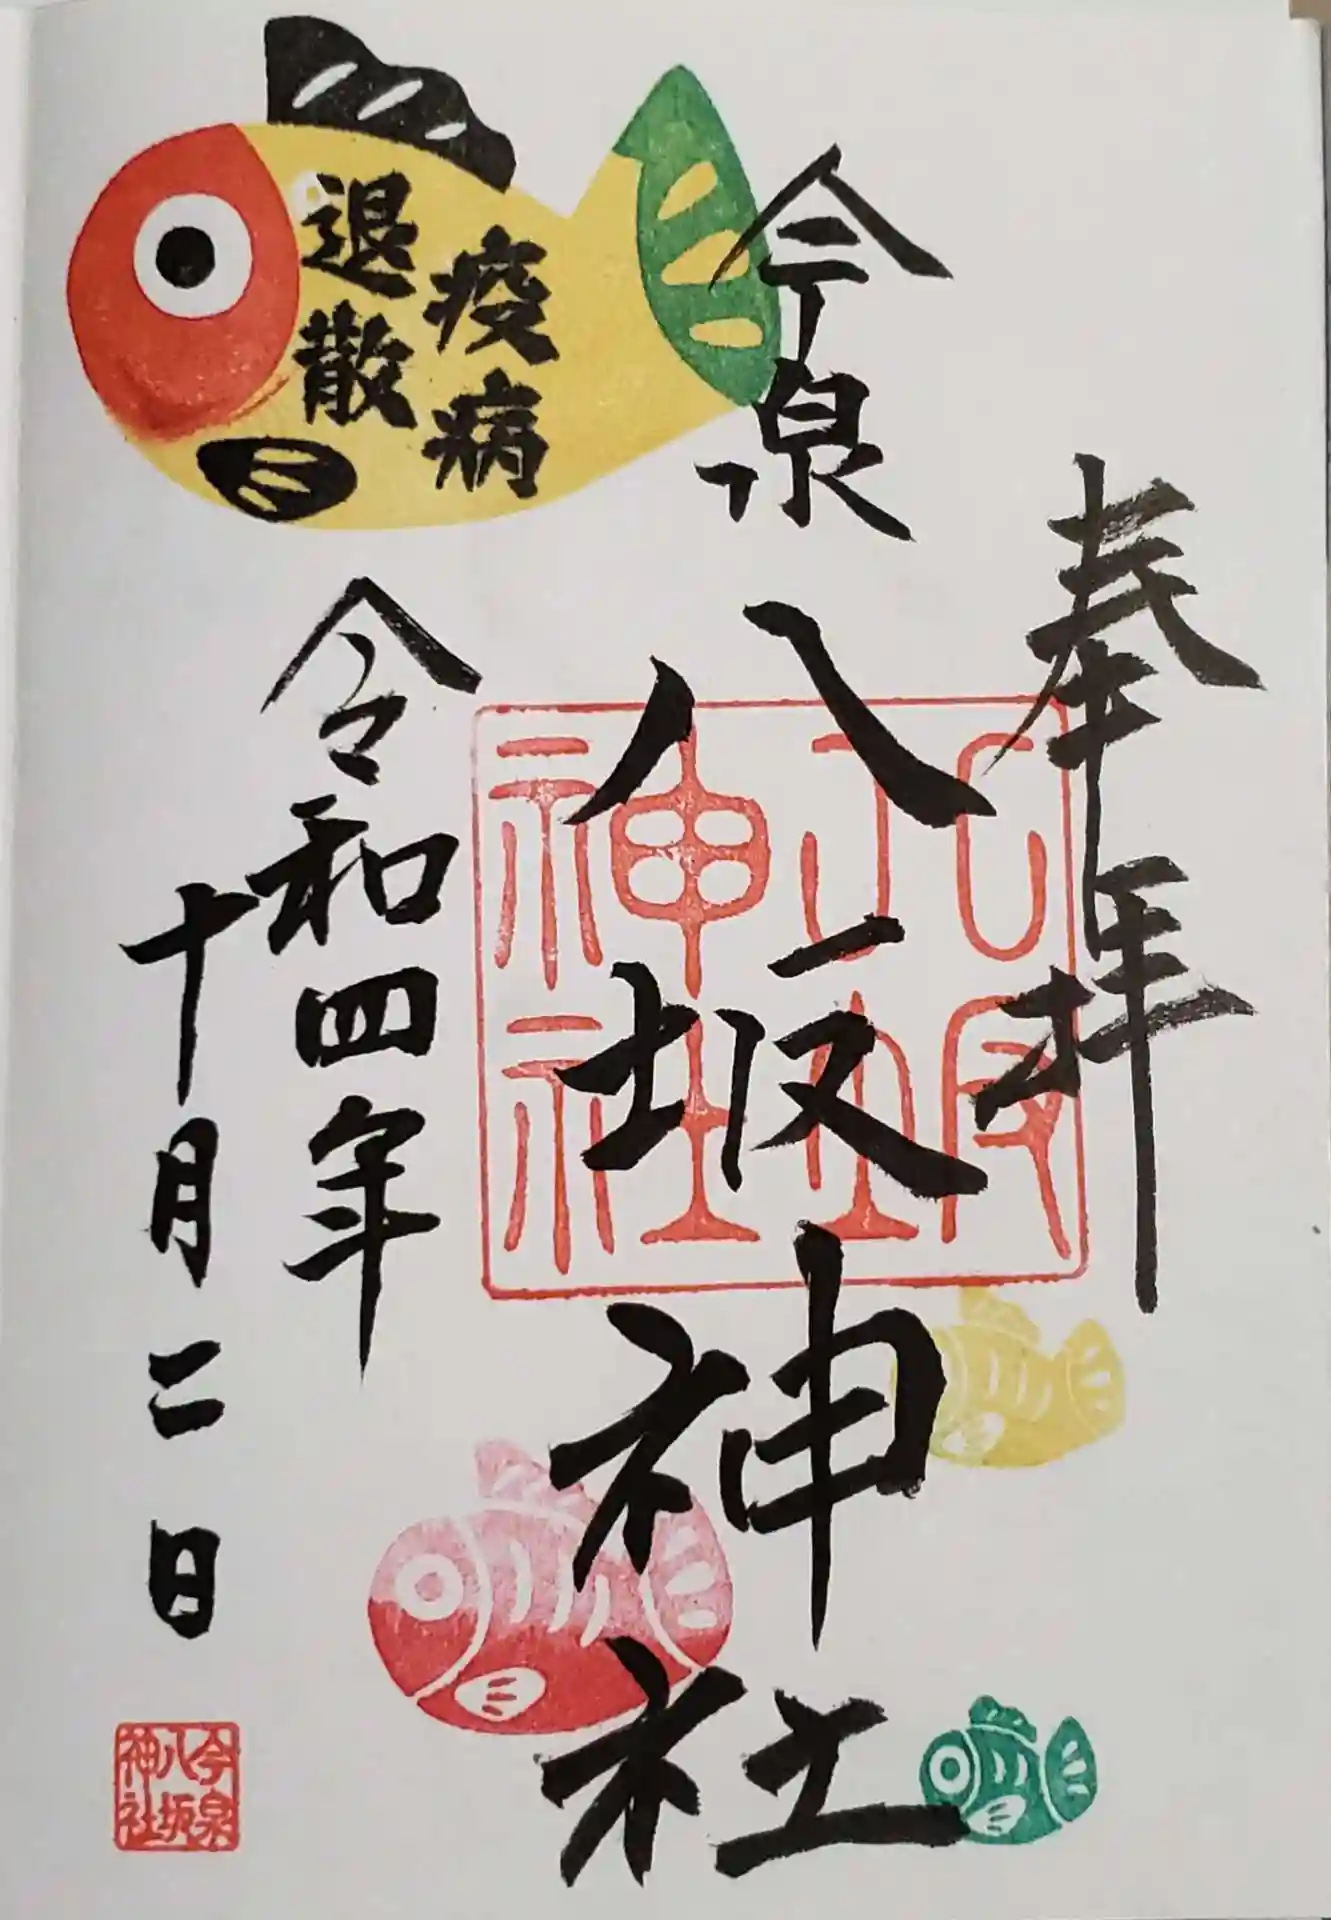 奉拝
今泉
八坂神社
疫病
退散
令和四年
十月二日
八坂
神社
今泉
八坂
神社